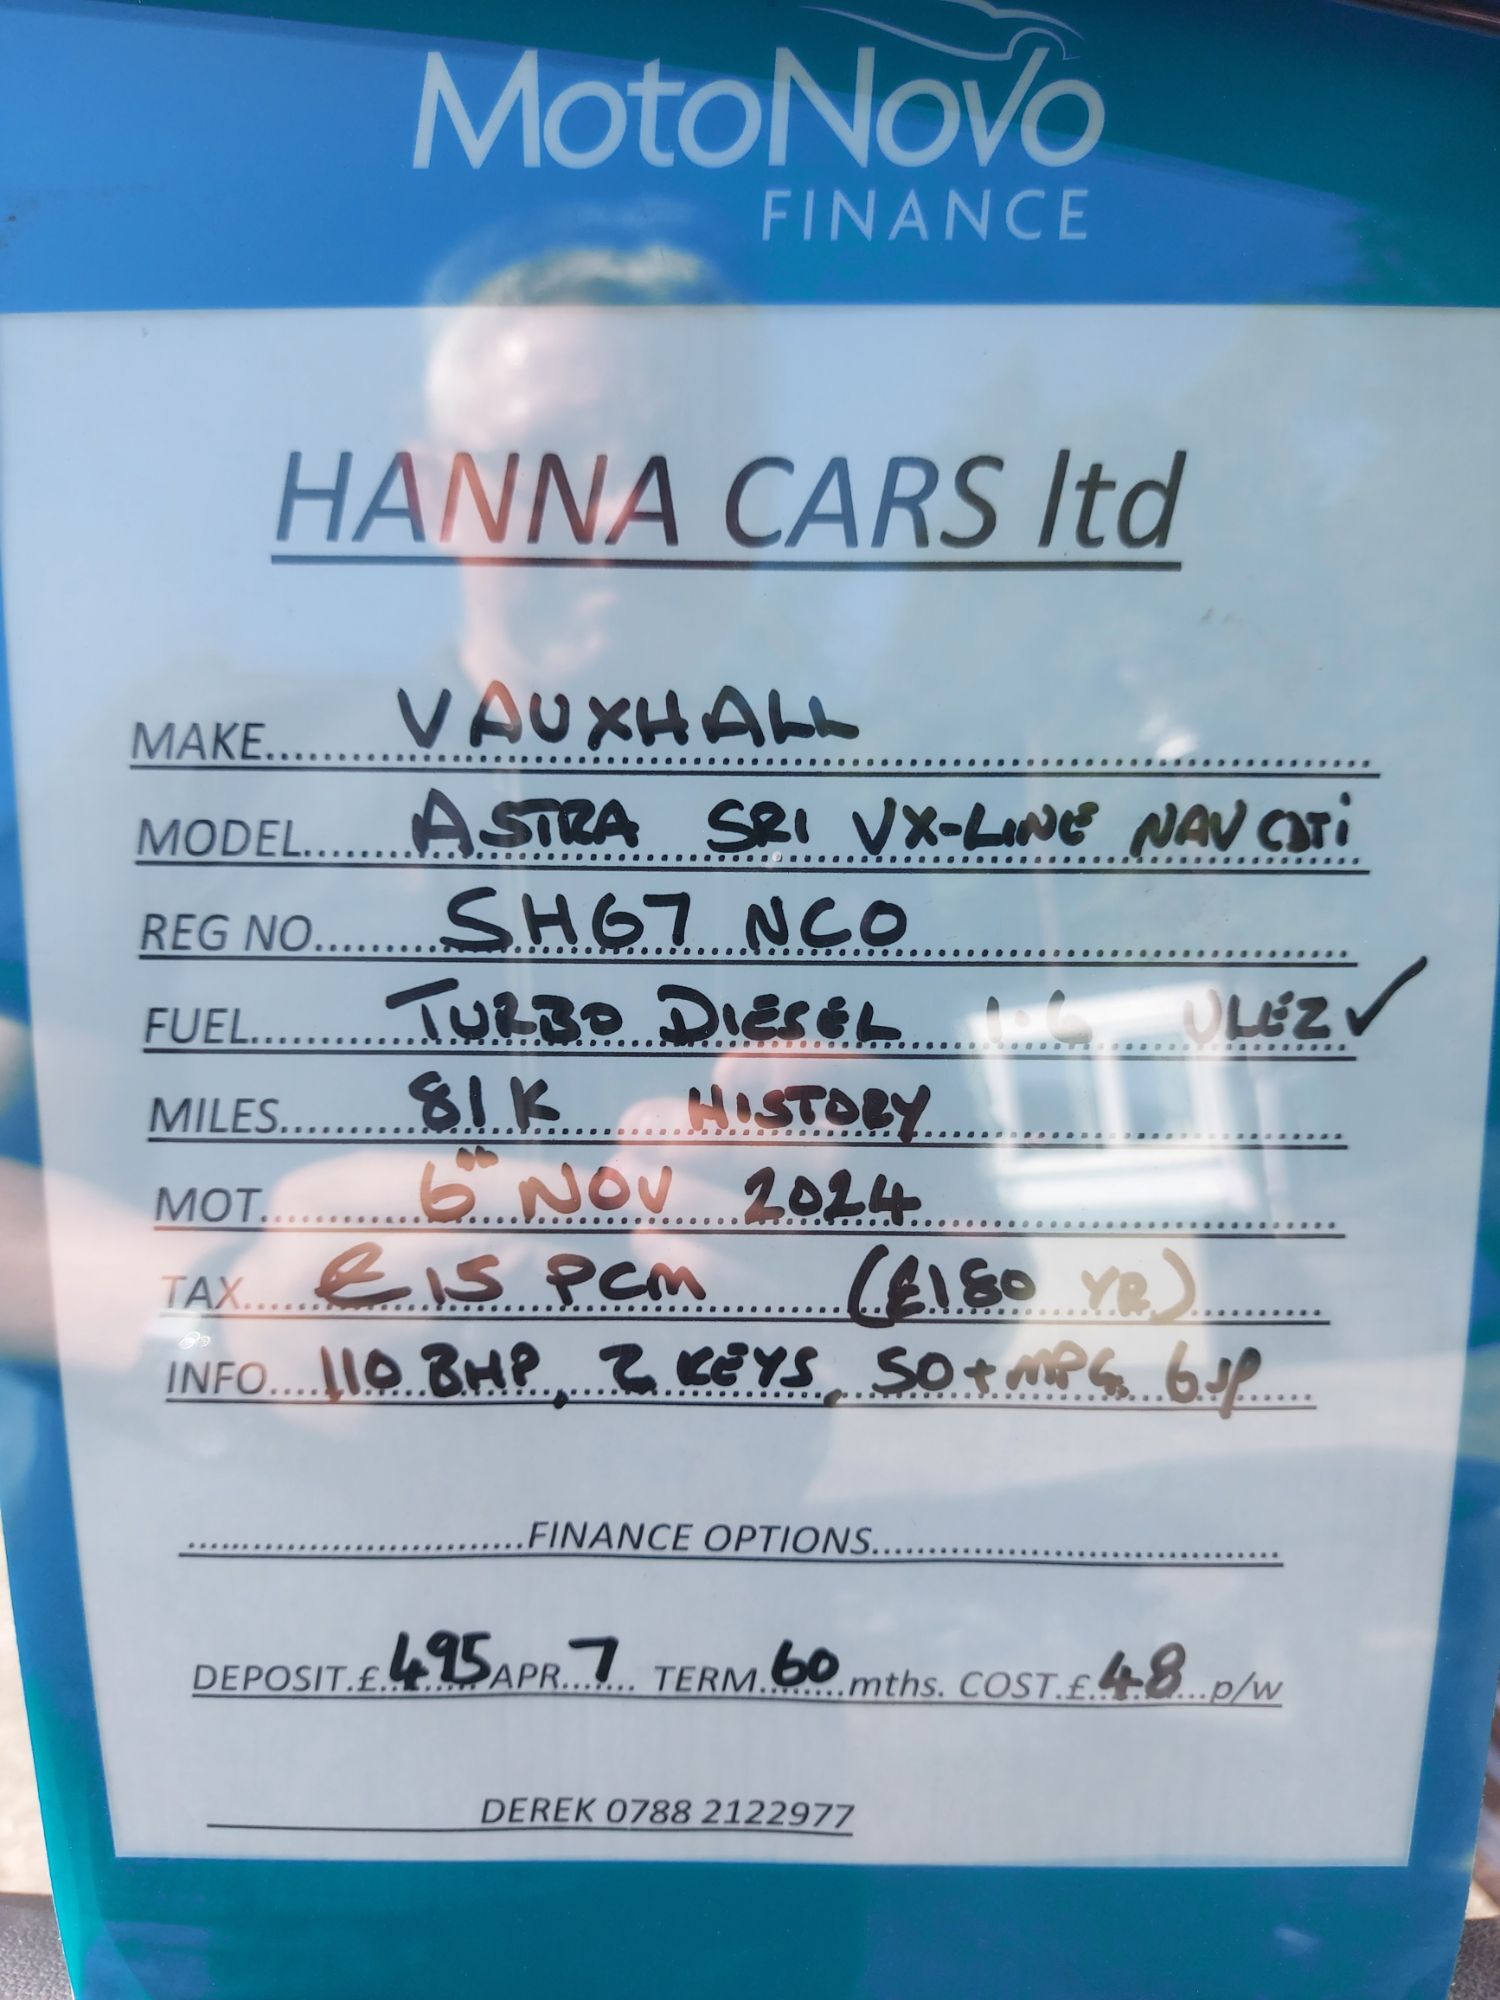 MOTONOVO
FINANCE
HANNA CARS ltd
MAKE.......VAUXHALL..............................
MODEL.......ASTRA SRI VX-LINE NAV CDTi
REG NO.......SH67 NCO..............................
FUEL.......TURBO DIESEL 1.6 ULEZ ✓
MILES.......81K HISTORY..............................
MOT.......6TH NOV 2024..............................
TAX.......£15 PCM (£180 YR)..........
INFO....110 BHP, 2 KEYS, 50+MPG 6SP
..............................FINANCE OPTIONS..............................
DEPOSIT.£.495 APR..7... TERM.60.mths. COST.£.48...p/w
DEREK 0788 2122977